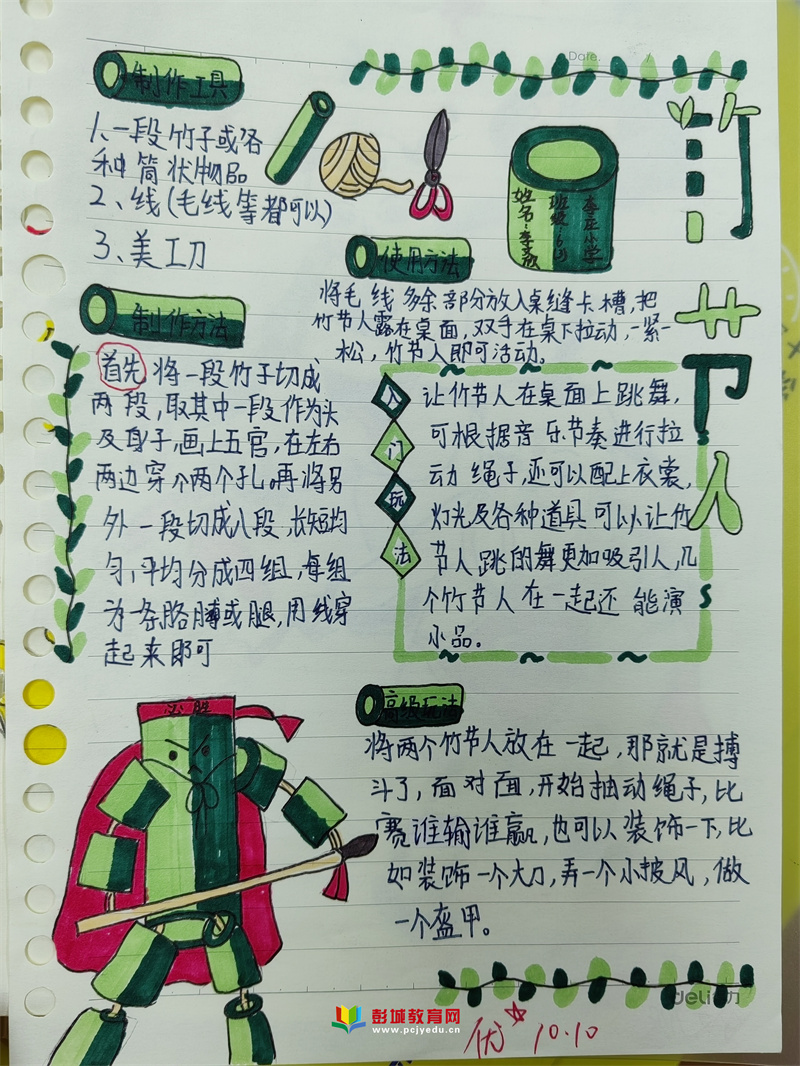 Date. /
竹节人
制作工具
1、一段竹子或各
种筒状物品
2、线(毛线等都可以)
3、美工刀
李庄小学
班级:6
姓名:李
使用方法
将毛线多余部分放入桌缝卡槽,把
竹节人露在桌面,双手在桌下拉动,一紧一
松,竹节人即可活动。
制作方法
首先,将一段竹子切成
两段,取其中一段作为头
及身子,画上五官,在左右
两边穿个两个孔。再将另
外一段切成八段,长短均
匀,平均分成四组,每组
为一条胳膊或腿,用线穿
起来即可
入门玩法
让竹节人在桌面上跳舞,
可根据音乐节奏进行拉
动绳子,还可以配上衣裳,
灯光及各种道具可以让竹
节人跳的舞更加吸引人,几
个竹节人在一起还能演
小品。
必胜
高级玩法
将两个竹节人放在一起,那就是搏
斗了,面对面,开始抽动绳子,比
赛谁输谁赢,也可以装饰一下,比
如装饰一个大刀,弄一个小披风,做
一个盔甲。
deli得力
彭城教育网
www.pcjyedu.cn
优☆ 10.10